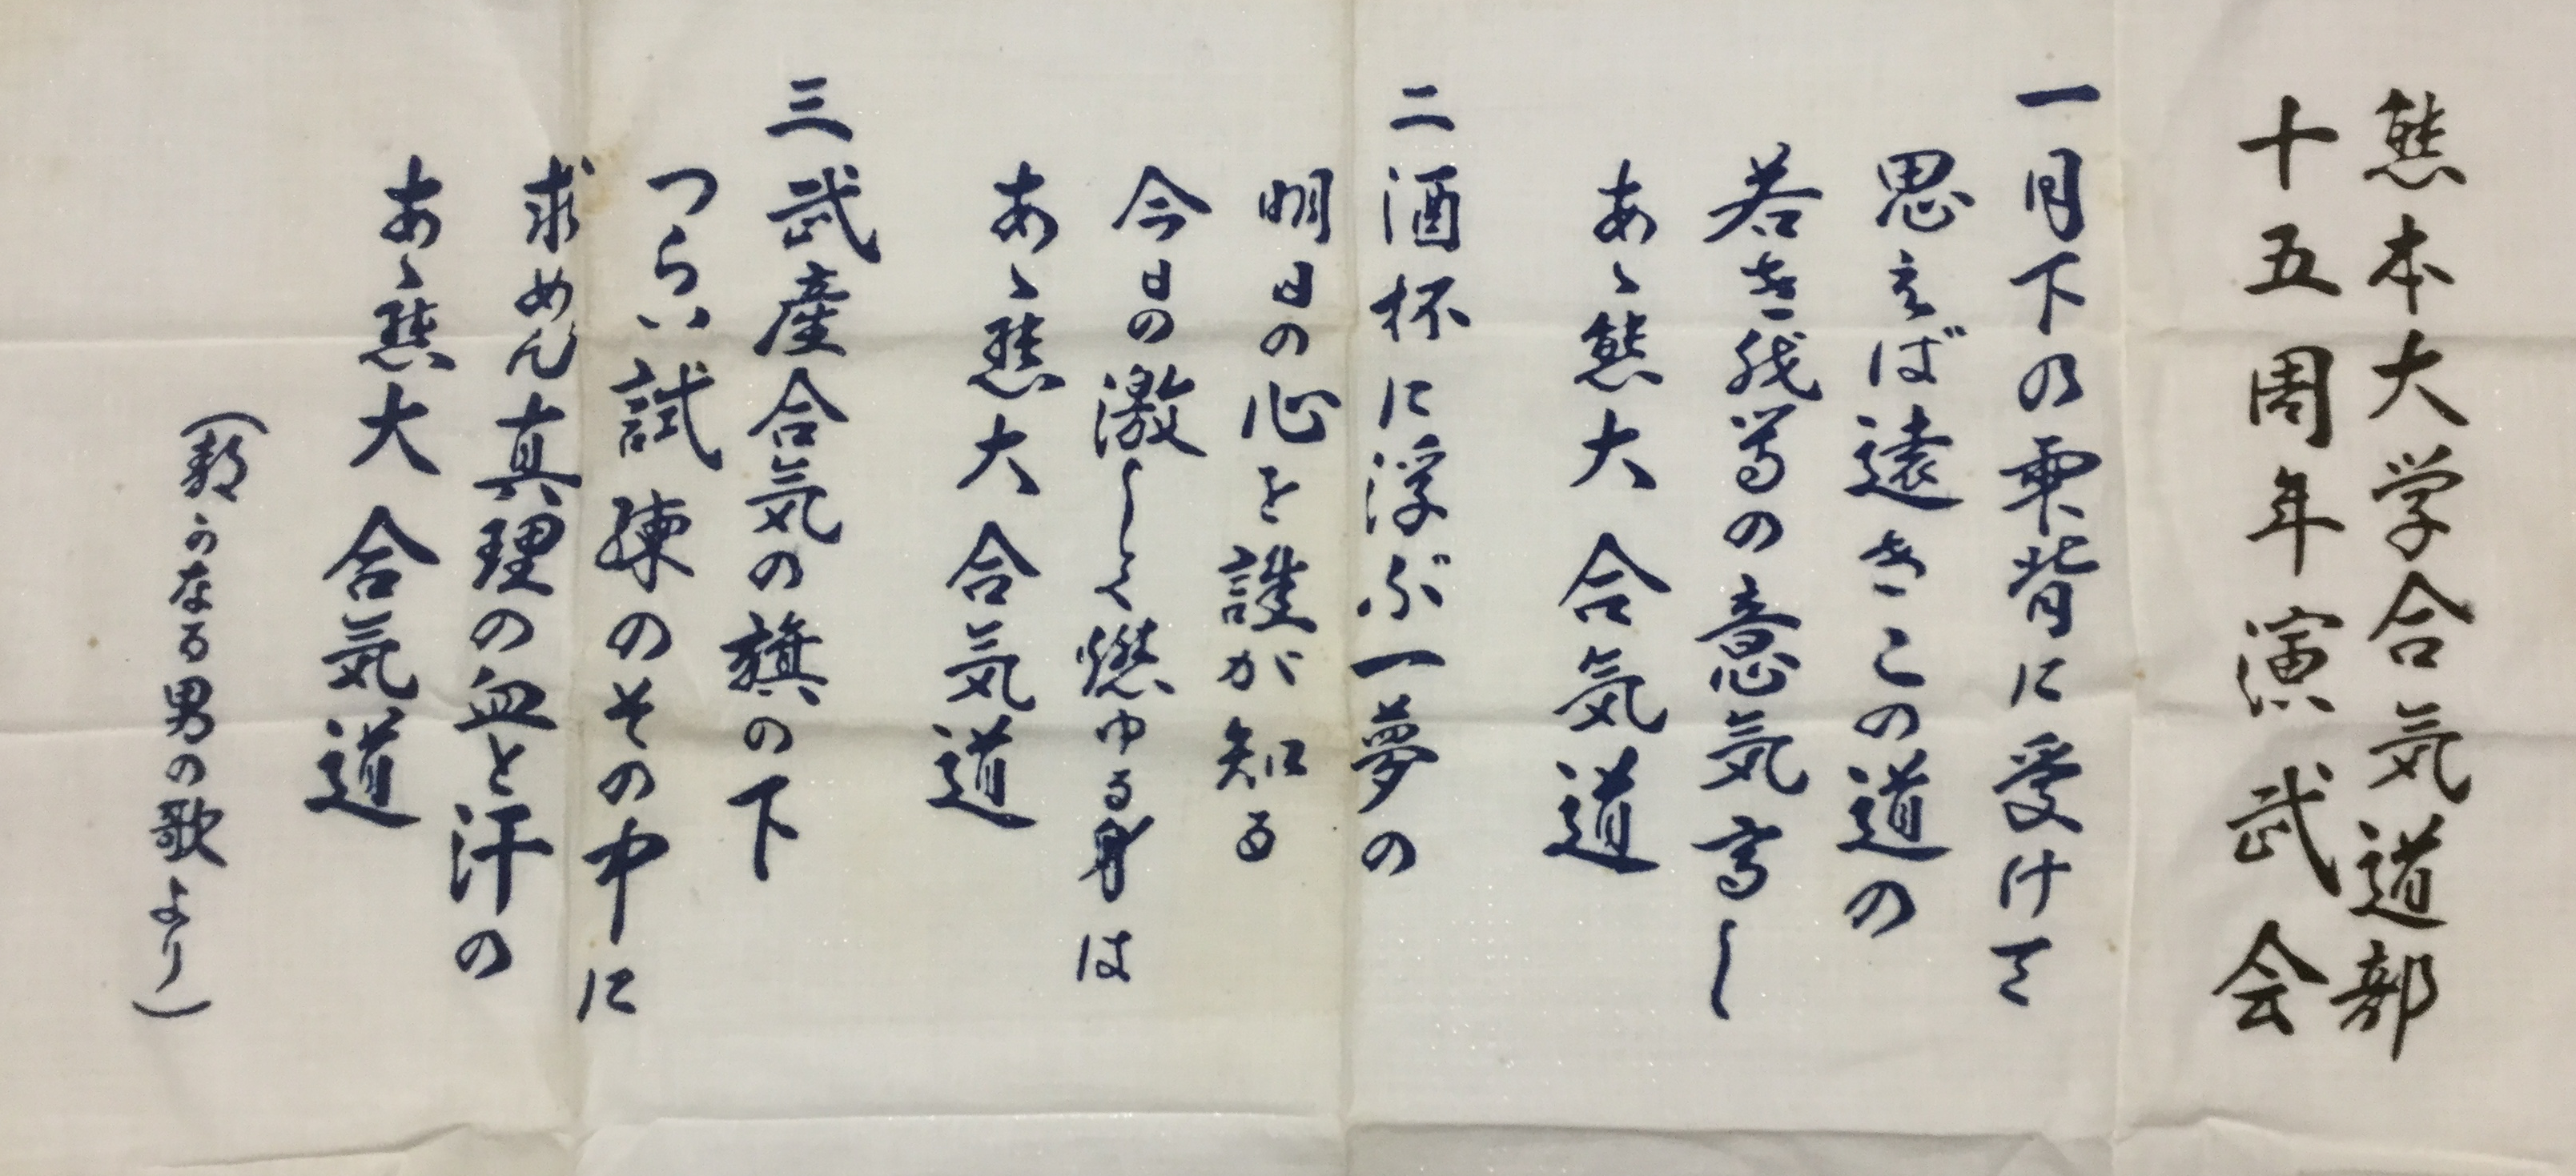 熊本大学合気道部
十五周年演武会
一 月下の雫背に受けて
思えば遠きこの道の
若き我等の意気高し
あゝ熊大合気道
二 酒杯に浮ぶ一夢の
明日の心を誰が知る
今日の激しく燃ゆる身は
あゝ熊大合気道
三 武産合気の旗の下
つらい試練のその中に
求めん真理の血と汗の
あゝ熊大合気道
(朗らかなる男の歌より)